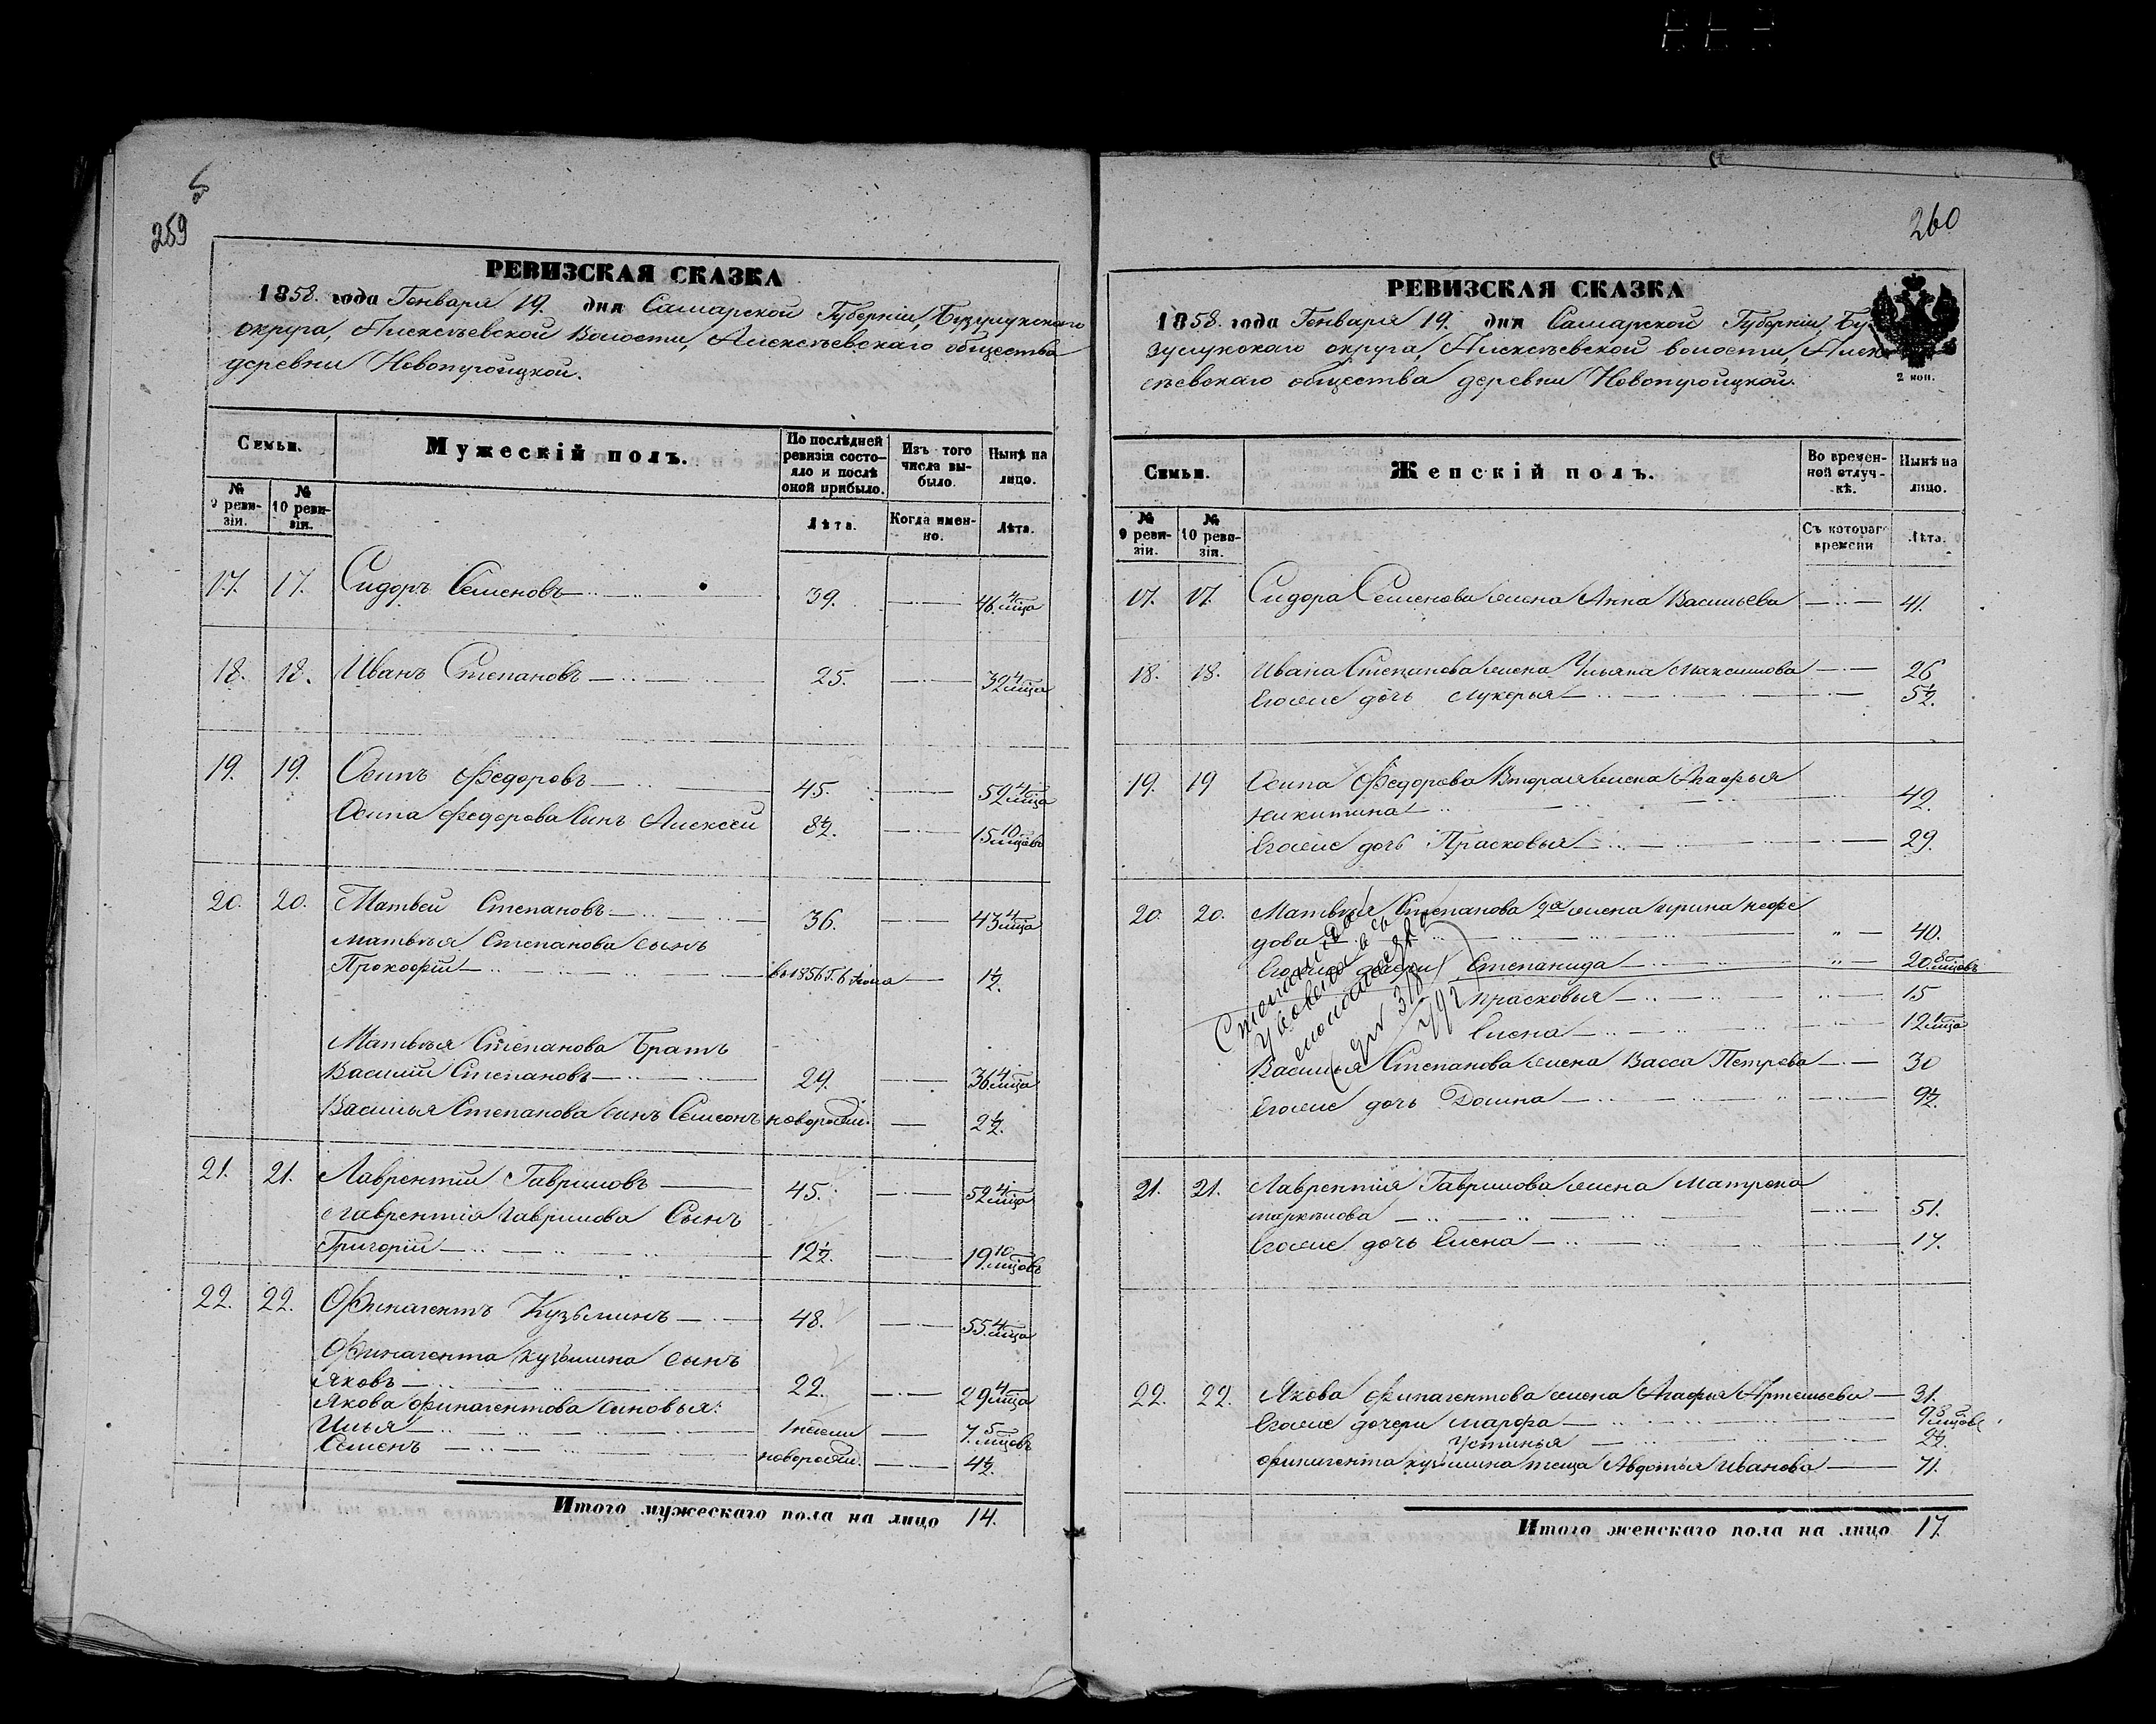 259
РЕВИЗСКАЯ СКАЗКА
1858. года Генваря 19. дня Самарской Губерніи, Бузулукскаго
округа, Алексѣевской Волости, Алексѣевскаго общества
деревни Новотроицкой.
Семьи.
Мужескій полъ.
По послѣдней ревизіи состояло и послѣ оной прибыло.
Изъ того числа выбыло.
Нынѣ на лицо.
№ 9 ревизіи.
№ 10 ревизіи.
Лѣта.
Когда именно.
Лѣта.
17. 17. Сидоръ Семеновъ 39. 46. 4 мца
18. 18. Иванъ Степановъ 25. 32 4 мца
19. 19. Осипъ Федоровъ 45. 52 4 мца
Осипа Федорова Сынъ Алексей 8½. 15 10 мцовъ
20. 20. Матвей Степановъ 36. 43 4 мца
Матвѣя Степанова сынъ
Прокофій въ 1856 г. 6 Июля 1½.
Матвѣя Степанова Братъ
Василій Степановъ 29. 36 4 мца
Василья Степанова сынъ Семенъ новорожд. 2½.
21. 21. Лаврентій Гавриловъ 45. 52 4 мца
Лаврентія Гаврилова Сынъ
Григорій 12½. 19 10 мцовъ
22. 22. Финагентъ Кузьминъ 48. 55 4 мца
Финагента Кузьмина сынъ
Яковъ 22. 29 4 мца
Якова Финагентова сыновья:
Илья 1 недели 7. 5 мцовъ
Семенъ новорожд. 4½.
Итого мужескаго пола на лицо 14.
260
РЕВИЗСКАЯ СКАЗКА
1858. года Генваря 19. дня Самарской Губерніи, Бу-
зулукскаго округа, Алексѣевской волости, Алек-
сѣевскаго общества деревни Новотроицкой.
2 коп.
Семьи.
Женскій полъ.
Во временной отлучкѣ.
Нынѣ на лицо.
№ 9 ревизіи.
№ 10 ревизіи.
Съ котораго времени
Лѣта.
17. 17. Сидора Семенова жена Анна Васильева 41.
18. 18. Ивана Степанова жена Ульяна Максимова 26
Егоже дочь Лукерья 5½.
19. 19 Осипа Федорова Вторая жена Агафья
Никитина 49.
Егоже дочь Прасковья 29.
20. 20. Матвѣя Степанова 2я жена Ирина Нефе
дова 40.
Егоже дочери Степанида 20. 8 мцовъ
Прасковья 15
Елена 12 1 мца
Василья Степанова жена Васса Петрова 30
Егоже дочь Домна 9½.
21. 21. Лаврентія Гаврилова жена Матрена
Маркелова 51.
Егоже дочь Елена 17.
22. 22. Якова Финагентова жена Агафья Артемьева 31.
Егоже дочери Марфа 9 8 мцовъ
Устинья 2½.
Финагента Кузьмина теща Авдотья Иванова 71.
Итого женскаго пола на лицо 17